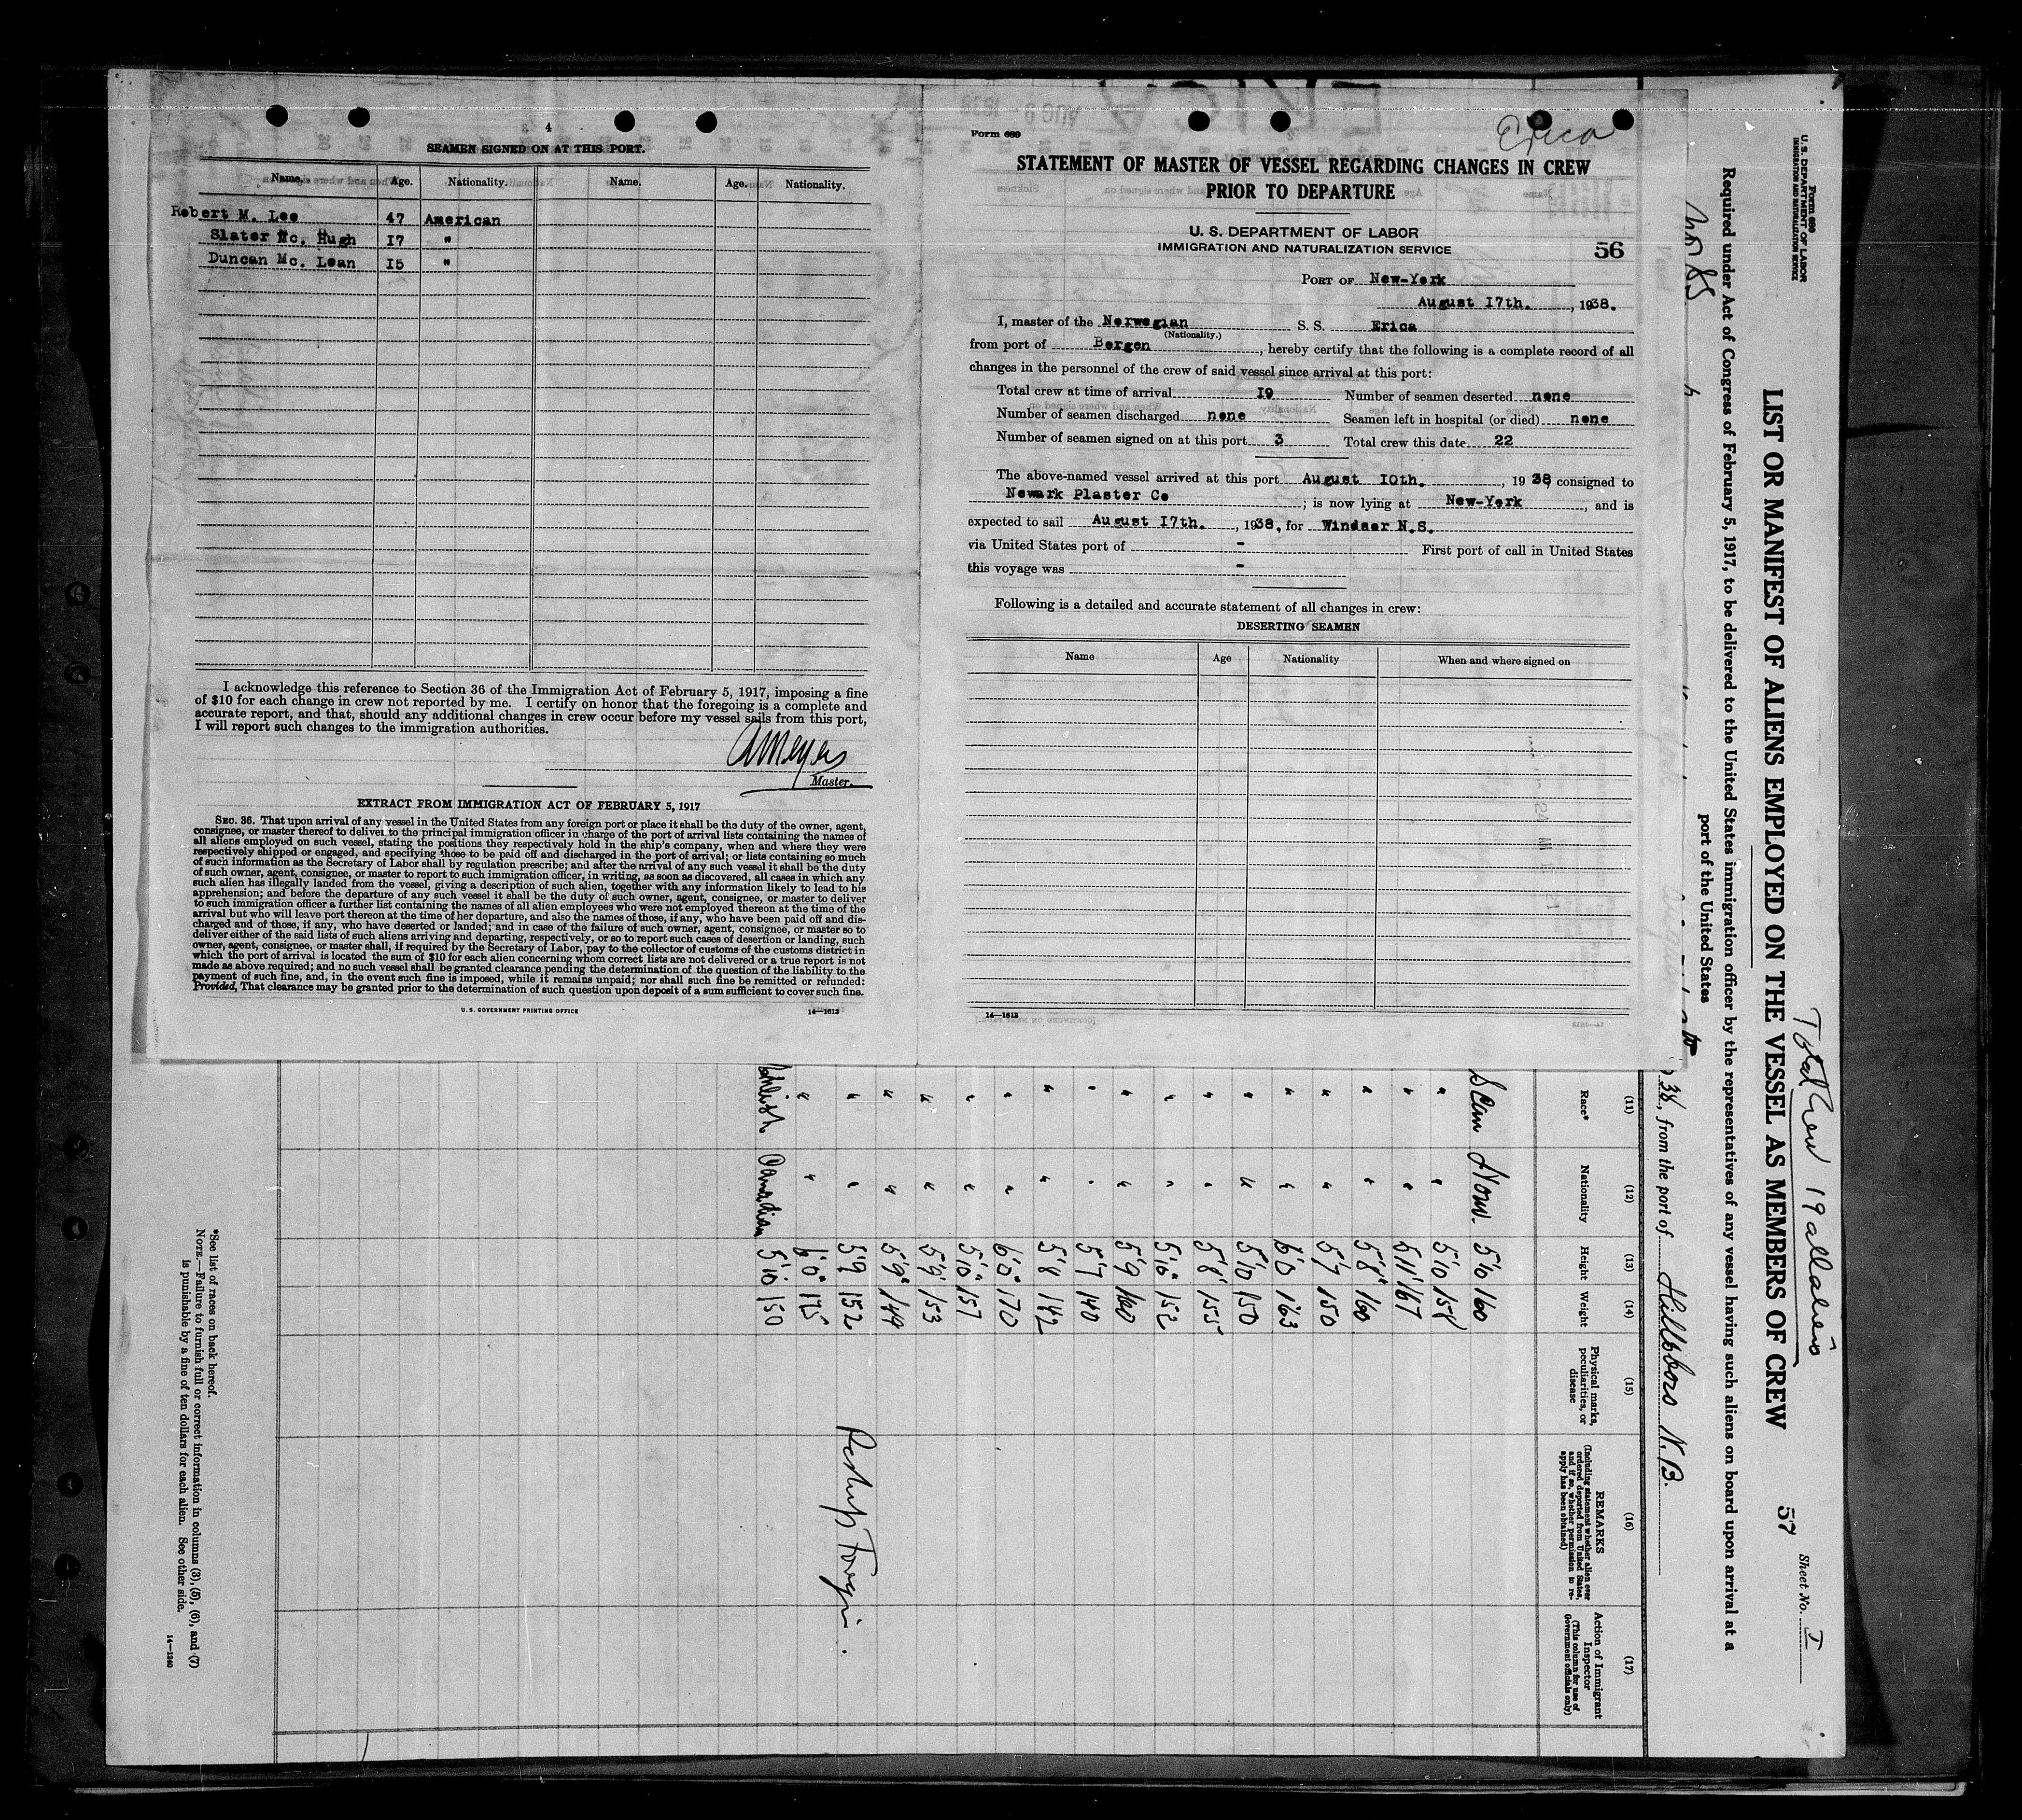 4
SEAMEN SIGNED ON AT THIS PORT.
Name. Age. Nationality. Name. Age. Nationality.
Robert M. Lee 47 American
Slater Mc. Hugh 17 "
Duncan Mc. Lean 15 "
I acknowledge this reference to Section 36 of the Immigration Act of February 5, 1917, imposing a fine
of $10 for each change in crew not reported by me. I certify on honor that the foregoing is a complete and
accurate report, and that, should any additional changes in crew occur before my vessel sails from this port,
I will report such changes to the immigration authorities.
AMeyer
Master.
EXTRACT FROM IMMIGRATION ACT OF FEBRUARY 5, 1917
SEC. 36. That upon arrival of any vessel in the United States from any foreign port or place it shall be the duty of the owner, agent,
consignee, or master thereof to deliver to the principal immigration officer in charge of the port of arrival lists containing the names of
all aliens employed on such vessel, stating the positions they respectively hold in the ship's company, when and where they were
respectively shipped or engaged, and specifying those to be paid off and discharged in the port of arrival; or lists containing so much
of such information as the Secretary of Labor shall by regulation prescribe; and after the arrival of any such vessel it shall be the duty
of such owner, agent, consignee, or master to report to such immigration officer, in writing, as soon as discovered, all cases in which any
such alien has illegally landed from the vessel, giving a description of such alien, together with any information likely to lead to his
apprehension; and before the departure of any such vessel it shall be the duty of such owner, agent, consignee, or master to deliver
to such immigration officer a further list containing the names of all alien employees who were not employed thereon at the time of the
arrival but who will leave port thereon at the time of her departure, and also the names of those, if any, who have been paid off and dis-
charged and of those, if any, who have deserted or landed; and in case of the failure of such owner, agent, consignee, or master so to
deliver either of the said lists of such aliens arriving and departing, respectively, or so to report such cases of desertion or landing, such
owner, agent, consignee, or master shall, if required by the Secretary of Labor, pay to the collector of customs of the customs district in
which the port of arrival is located the sum of $10 for each alien concerning whom correct lists are not delivered or a true report is not
made as above required; and no such vessel shall be granted clearance pending the determination of the question of the liability to the
payment of such fine, and, in the event such fine is imposed, while it remains unpaid; nor shall such fine be remitted or refunded:
Provided, That clearance may be granted prior to the determination of such question upon deposit of a sum sufficient to cover such fine.
U.S. GOVERNMENT PRINTING OFFICE 14—1613
Form 689
Erica
STATEMENT OF MASTER OF VESSEL REGARDING CHANGES IN CREW
PRIOR TO DEPARTURE
U. S. DEPARTMENT OF LABOR
IMMIGRATION AND NATURALIZATION SERVICE
56
PORT OF New-York
August 17th., 1938.
I, master of the Norwegian S. S. Erica
(Nationality.)
from port of Bergen, hereby certify that the following is a complete record of all
changes in the personnel of the crew of said vessel since arrival at this port:
Total crew at time of arrival 19 Number of seamen deserted none
Number of seamen discharged none Seamen left in hospital (or died) none
Number of seamen signed on at this port 3 Total crew this date 22
The above-named vessel arrived at this port August 10th., 1938, consigned to
Newark Plaster Co; is now lying at New-York, and is
expected to sail August 17th., 1938, for Windsor N.S.
via United States port of - First port of call in United States
this voyage was -
Following is a detailed and accurate statement of all changes in crew:
DESERTING SEAMEN
Name Age Nationality When and where signed on
14—1613
Form 680
U. S. DEPARTMENT OF LABOR
IMMIGRATION AND NATURALIZATION SERVICE
Total Crew 19 all aliens
LIST OR MANIFEST OF ALIENS EMPLOYED ON THE VESSEL AS MEMBERS OF CREW
57
Sheet No. I
Required under Act of Congress of February 5, 1917, to be delivered to the United States immigration officer by the representatives of any vessel having such aliens on board upon arrival at a
port of the United States
38, from the port of Hillsboro N.B.
(11) (12) (13) (14) (15) (16) (17)
Race* Nationality Height Weight Physical marks, peculiarities, or disease REMARKS (Including statement whether alien ever ordered deported from United States, and if so, whether permission to reapply has been obtained) Action of Immigrant Inspector (This column for use of Government officials only)
Scan Norw. 5'10 160
" " 5'10 158
" " 5'11 167
" " 5'8" 160
" " 5'7 150
" " 6'0 163
" " 5'10 150
" " 5'8 155
" " 5'10" 152
" " 5'9 160
" " 5'7 140
" " 5'8 142
" " 6'0" 170
" " 5'10" 157
" " 5'9" 153
" " 5'9" 149
" " 5'9 152
" " 6'0" 175
English Canadian 5'10 150
*See list of races on back hereof.
NOTE.—Failure to furnish full or correct information in columns (3), (5), (6), and (7)
is punishable by a fine of ten dollars for each alien. See other side.
14—1240